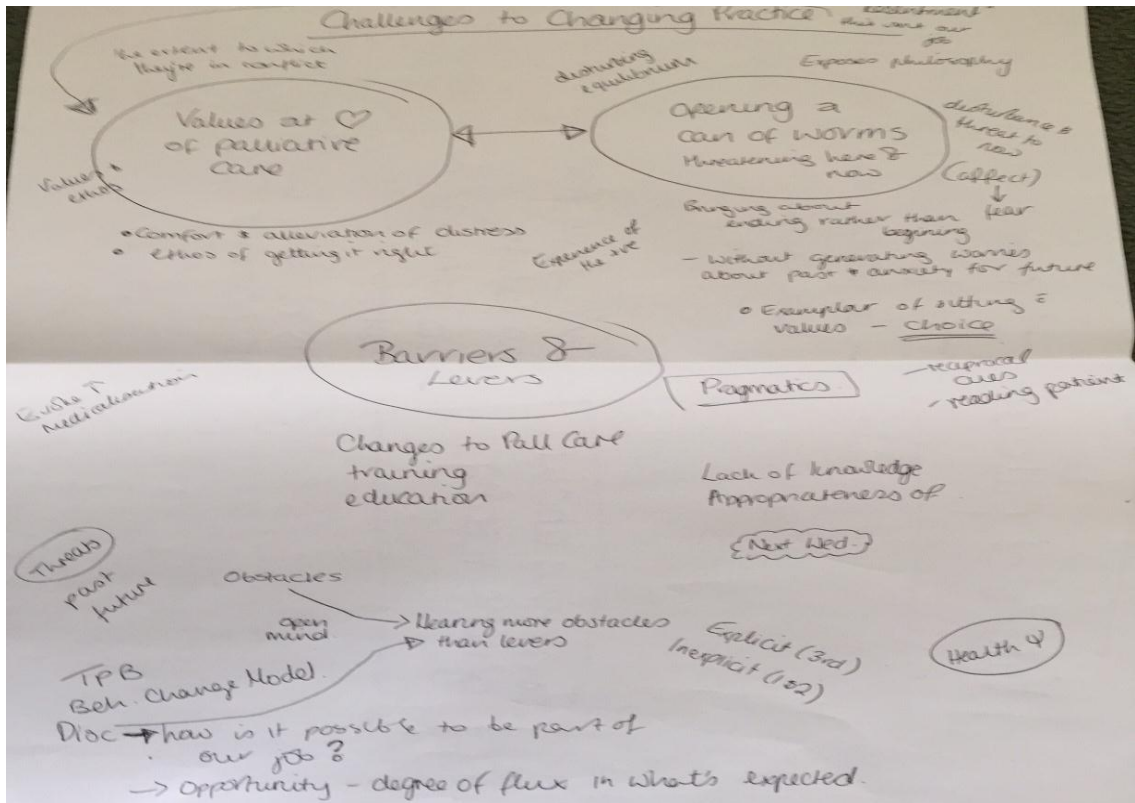 Challenges to Changing Practice
that want our
job
the extent to which
they're in conflict
disturbing
equilibrium
Exposes philosophy
Values at ♡
of palliative
care
Opening a
can of worms
threatening here &
now
disturbance &
threat to
now
(affect)
↓
fear
Values
ethos
• Comfort & alleviation of distress
• ethos of getting it right
Experience of
the
Bringing about
ending rather than
begining
- without generating worries
about past & anxiety for future
• Exemplar of sitting c̄
values - choice
- reciprocal
cues
- reading patient
Barriers &
Levers
Pragmatics
Evoke ↑
Medicalisation
Changes to Pall Care
training
education
Lack of knowledge
Appropriateness of
Next Wed.
Threats
past
future
Obstacles
open
mind.
→ Hearing more obstacles
than levers
Explicit (3rd)
Inexplicit (1&2)
Health Ψ
TPB
Beh. Change Model.
Disc → how is it possible to be part of
our job?
→ Opportunity - degree of flux in what's expected.